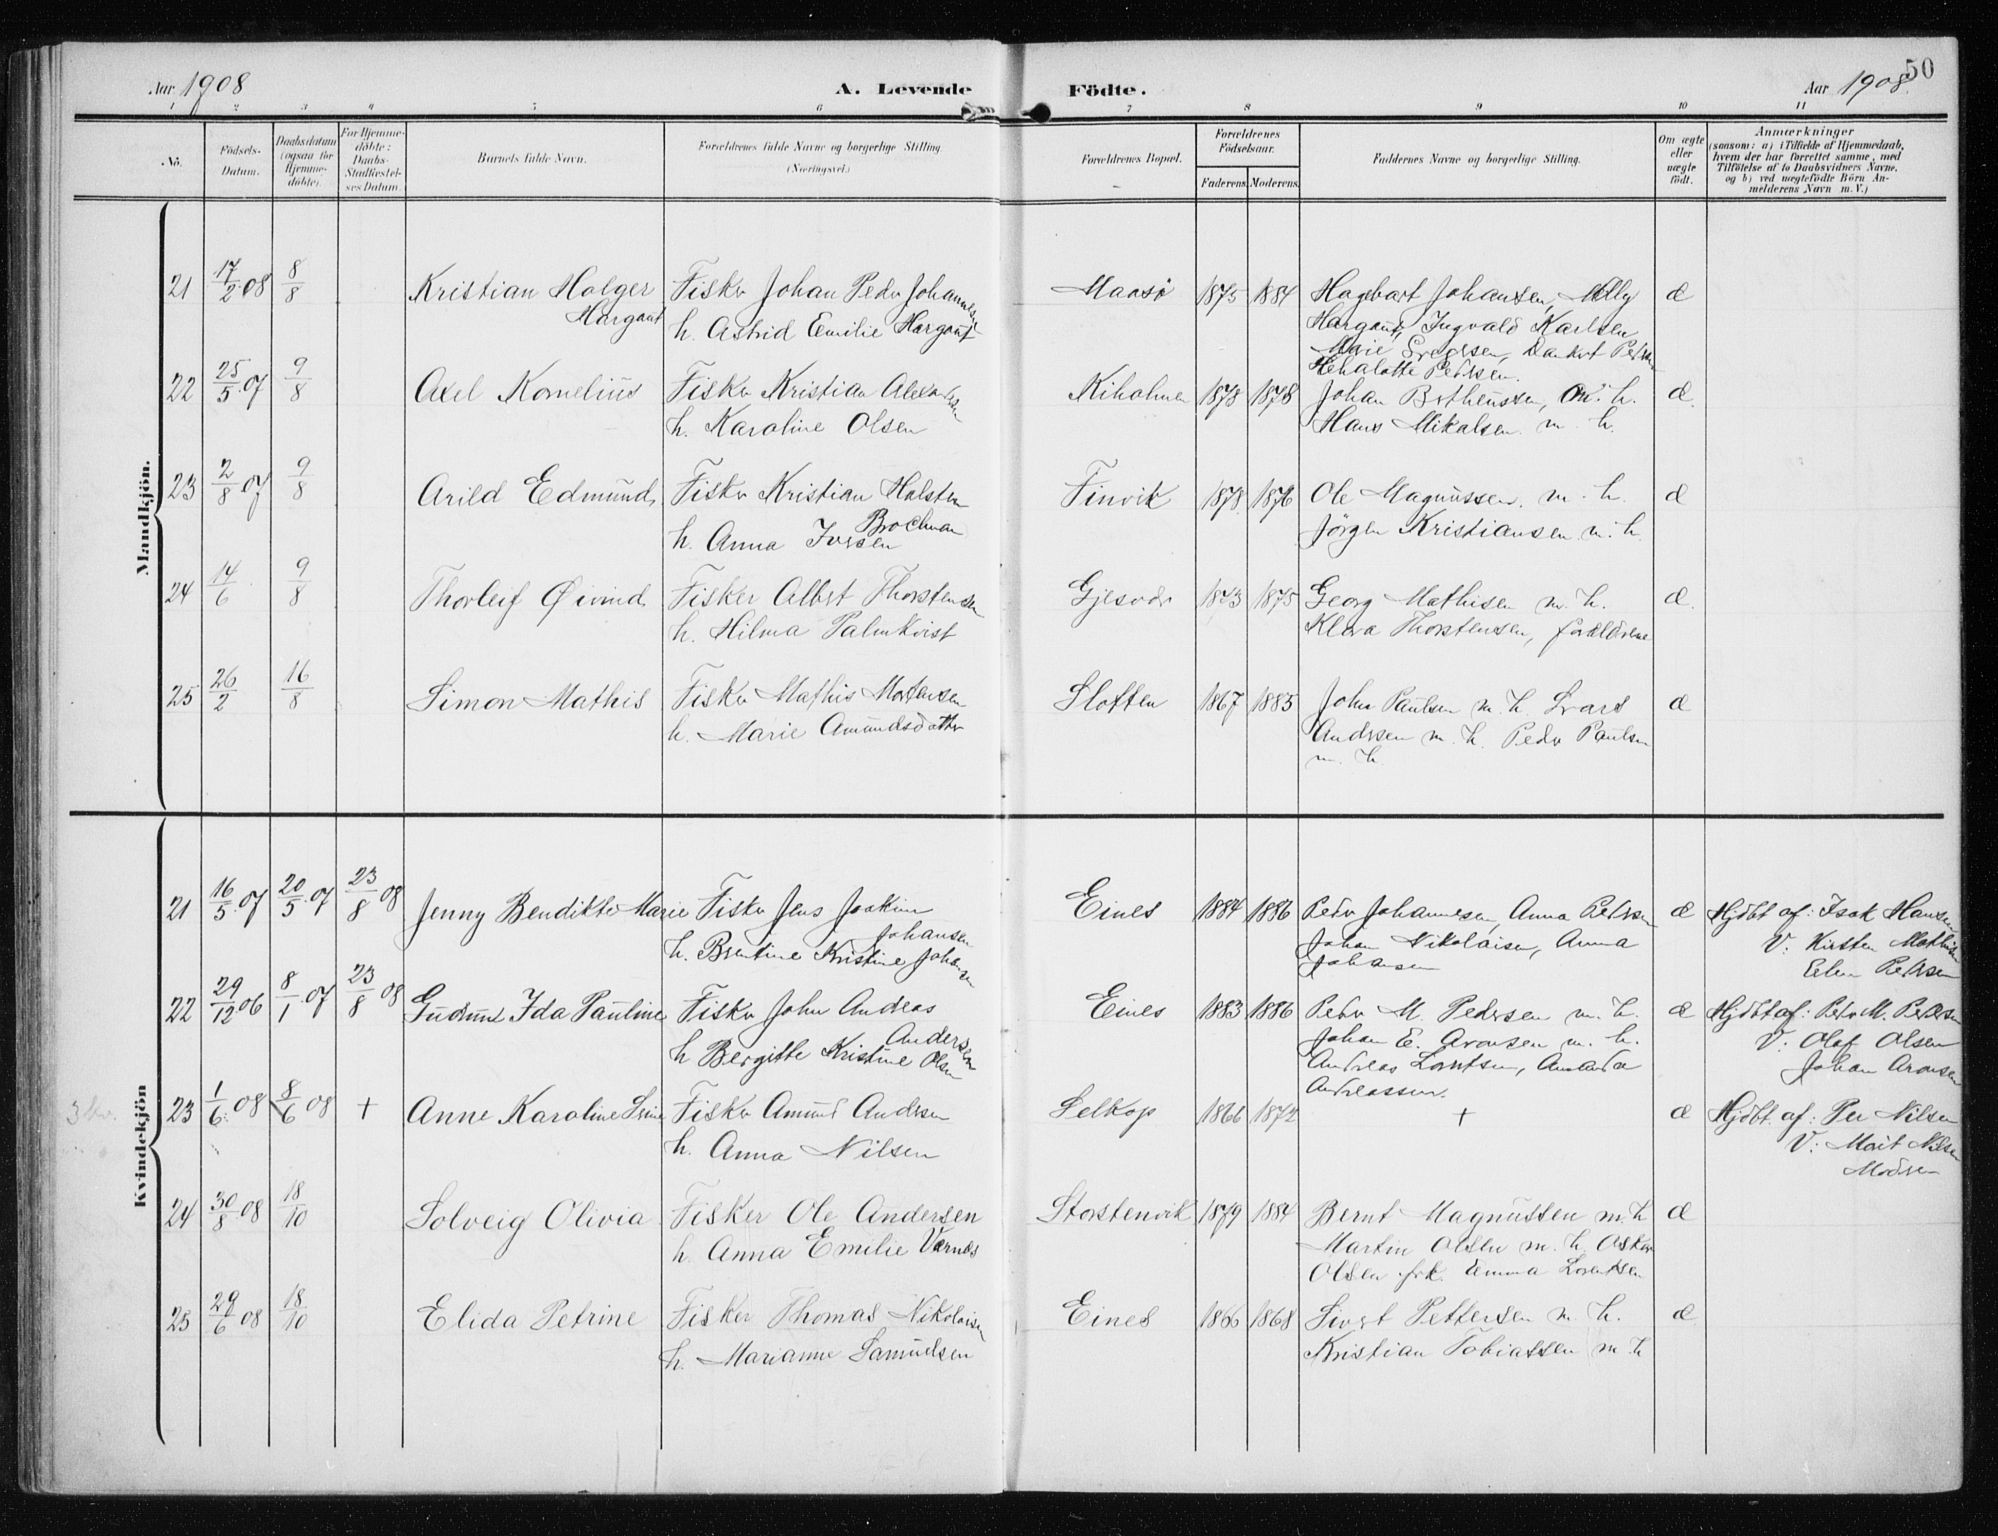 Aar 1908
A. Levende Födte.
Aar 1908.
50
1 2 3 4 5 6 7 8 9 10 11
No.
Födsels-
Datum.
Daabsdatum
(ogsaa for
Hjemme-
döbte).
For Hjemme-
döbte:
Daabs-
Stadfæstel-
ses Datum.
Barnets fulde Navn.
Forældrenes fulde Navne og borgerlige Stilling.
(Næringsvei.)
Forældrenes Bopæl.
Forældrenes
Födselsaar.
Faderens. Moderens.
Faddernes Navne og borgerlige Stilling.
Om ægte
eller
uægte
födt.
Anmærkninger
(saasom: a) i Tilfælde af Hjemmedaab,
hvem der har forrettet samme, med
Tilföielse af to Daabsvidners Navne,
og b) ved uægtefödte Börn An-
melderens Navn m. V.)
Mandkjön.
21 17/2 08 8/8 Kristian Holger Fisker Johan Peder Johannesen Maasö 1875 1884 Hagbart Johansen, Molly æ
Hargaut h. Astrid Emilie Hargaut Hargaut, Ingvald Karlsen
Marie Dankert Pedersen
Pedersen.
22 25/5 07 9/8 Axel Kornelius Fisker Kristian Kiholmen 1878 1878 Johan m. h. æ.
h. Karoline Olsen Hans Mikalsen m. h.
23 2/8 07 9/8 Arild Edmund Fisker Kristian Holsten Finvik 1878 1876 Ole Magnussen m. h. æ
Brochman
h. Anna Iversen Jörgen Kristiansen m. h.
24 14/6 9/8 Thorleif Øivind Fisker Albert Thorstensen Gjesvær 1873 1875 Georg Mathisen m. h. æ.
h. Hilma Palmkvist Klara Thorstensen, forældrene
25 26/2 16/8 Simon Mathis Fisker Mathis Mortensen Slotten 1867 1885 John Paulsen m. h. æ
h. Marie Amundsdatter Andersen m. h. Peder Paulsen
m. h.
Kvindekjön
21 16/5 07 20/5 07 23/8 08 Jenny Bendikte Marie Fisker Jens Joakim Eines 1884 1886 Peder Johannesen, Anna Pedersen æ Hjdbt af: Isak Hansen
Johansen
h. Berntine Kristine Johansen Johan Nikolaisen, Anna V: Kirsten Mathisen
Johansen Pedersen
22 29/12 06 8/1 07 23/8 08 Gudrun Ida Pauline Fisker John Andreas Eines 1883 1886 Peder M. Pedersen m. h. æ Hjdbt af: Peder M. Pedersen
Andersen
h. Bergitte Kristine Olsen Johan E. Aronsen m. h. V: Olaf Olsen
Andreas Lorntsen, Amanda Johan Aronsen
Andreassen.
23 1/6 08 8/6 08 + Anne Karoline Fisker Amund Andersen Selkop 1866 1872 + æ Hjdbt. af: Per Nilsen
h. Anna Nilsen V: Marit Nilsen
24 30/8 08 18/10 Solveig Olivia Fisker Ole Andersen Storstenvik 1879 1884 Bernt Magnussen m. h æ
h. Anna Emilie Værnes Martin Olsen m. h. Oskar
Olsen frk. Emma Lorentsen
25 29/6 08 18/10 Elida Petrine Fisker Thomas Nikolaisen Eines 1866 1868 Sivert Pettersen m. h. æ
h. Marianne Samuelsen Kristian Tobiassen m. h